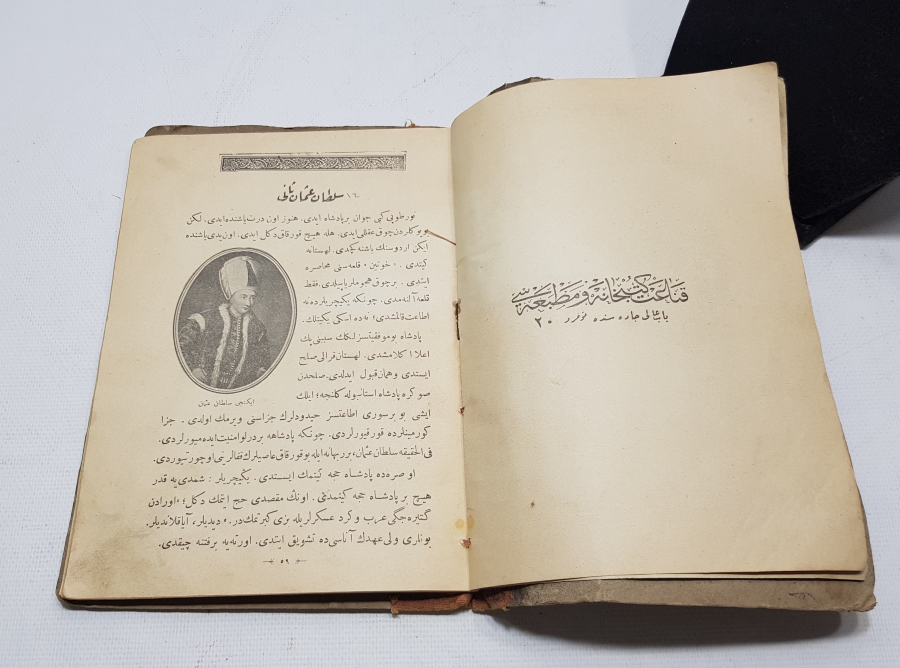 ١٦ـ سلطان عثمان ثانی
نور طوپی کبی جوان بر پادشاه ایدی. هنوز اون درت یاشنده ایدی. لکن
بویوکلردن چوق عقللی ایدی. هله هیچ قورقاق دکل ایدی. اون یدی یاشنده
ایکن اردوسنك باشنه کچدی. لهستانه
کیتدی. «خوتین» قلعه سنی محاصره
ایتدی. بر چوق هجوملر یاپیلدی. فقط
قلعه آلنه مدی. چونکه یکیچریلرده نه
اطاعت قالمشدی؛ نه ده اسکی یکیتلك.
پادشاه بو موفقیتسزلکك سببنی پك
اعلا اکلامشدی. لهستان قرالی صلح
ایستدی و همان قبول ایدلدی. صلحدن
صوکره پادشاه استانبوله کلنجه؛ ایلك
ایکنجی سلطان عثمان
ایشی بو برسوری اطاعتسز حیدودلرك جزاسنی ویرمك اولدی. جزا
کورمینلرده قورقیورلردی. چونکه پادشاهه بر درلو امنیت ایده میورلردی.
فی الحقیقه سلطان عثمان، بر بهانه ایله بو قورقاق عاصیلرك قفالرینی اوچورتیوردی.
او صره ده پادشاه حجه کیتمك ایستدی. یکیچریلر: شمدی یه قدر
هیچ بر پادشاه حجه کیتمدی. اونك مقصدی حج ایتمك دکل؛ «اورادن
کتیره جکی عرب و کرد عسکرلریله بزی کبرتمکدر.» دیدیلر، آیاقلاندیلر.
بونلری ولی عهدك آناسی ده تشویق ایتدی. اورته یه بر فتنه چیقدی.
٥٩
قناعت کتبخانه و مطبعه سی
بابعالی جاده سنده نومرو ٢٠